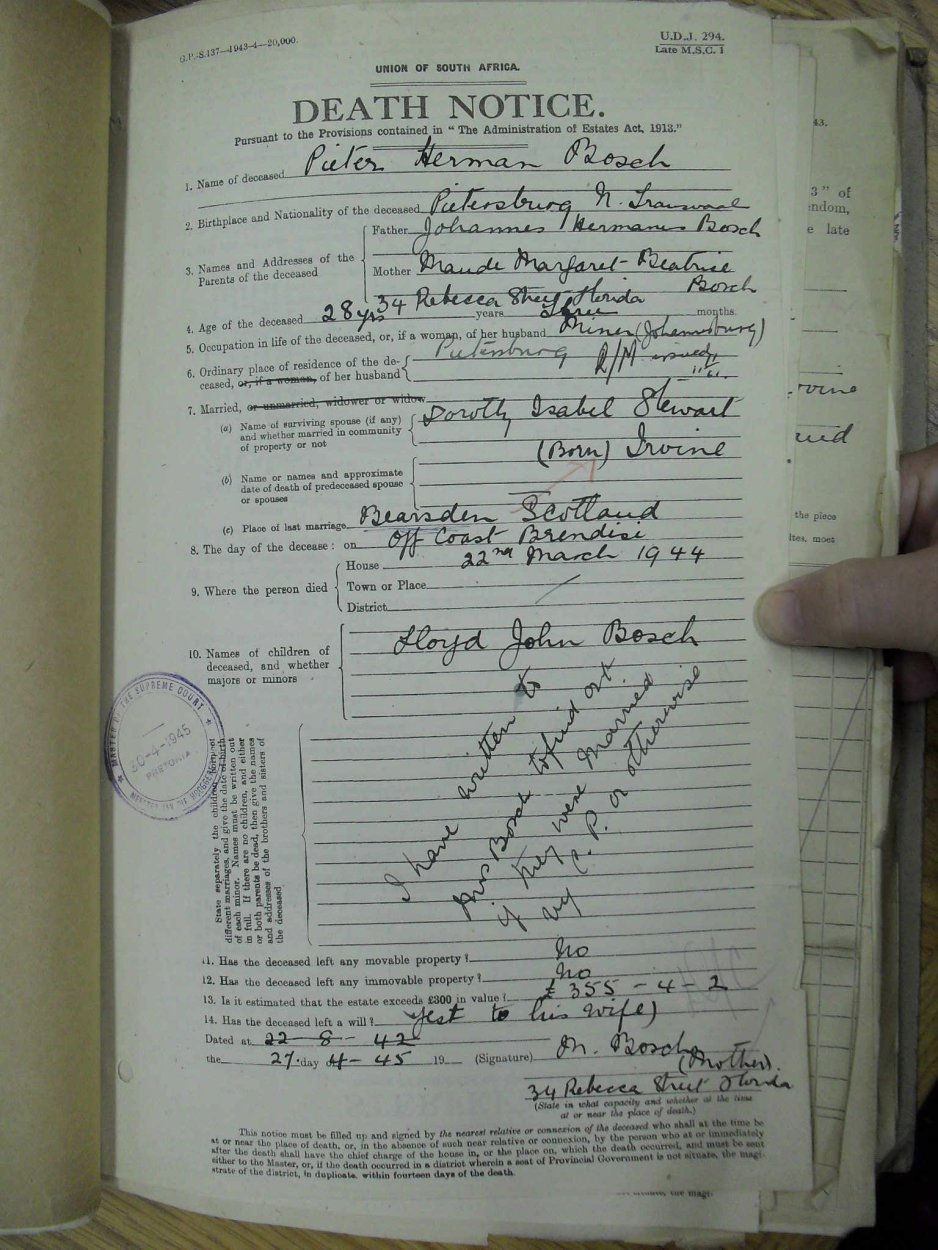 G.P.-S.137—1943-4—20,000.
U.D.J. 294.
Late M.S.C. 1
UNION OF SOUTH AFRICA.
DEATH NOTICE.
Pursuant to the Provisions contained in "The Administration of Estates Act, 1913."
1. Name of deceased Pieter Herman Bosch
2. Birthplace and Nationality of the deceased Pietersburg N. Transvaal
3. Names and Addresses of the Parents of the deceased
Father Johannes Hermanus Bosch
Mother Maude Margaret Beatrice
Bosch
34 Rebecca Street Florida
4. Age of the deceased 28 yrs years three months.
5. Occupation in life of the deceased, or, if a woman, of her husband Miner (Johannesburg)
6. Ordinary place of residence of the deceased, or, if a woman, of her husband Pietersburg
R/M issued
7. Married, or unmarried, widower or widow
(a) Name of surviving spouse (if any) and whether married in community of property or not
Dorothy Isabel Stewart
(Born) Irvine
(b) Name or names and approximate date of death of predeceased spouse or spouses
(c) Place of last marriage Bearsden Scotland
8. The day of the decease: on off Coast Brendisi
9. Where the person died
House 22nd March 1944
Town or Place
District
10. Names of children of deceased, and whether majors or minors
Lloyd John Bosch
I have written to
Mrs Bosch to find out
if they were married
by C. P. or otherwise
State separately the children born of different marriages, and give the date of birth of each minor. Names must be written out in full. If there are no children, and either or both parents be dead, then give the names and addresses of the brothers and sisters of the deceased
MASTER OF THE SUPREME COURT
30-4-1945
PRETORIA
11. Has the deceased left any movable property? No
12. Has the deceased left any immovable property? No
13. Is it estimated that the estate exceeds £300 in value? £ 355 - 4 - 2
14. Has the deceased left a will? Yes to his wife)
Dated at 22 - 8 - 42
the 27. day of 4 - 45 19 (Signature) M. Bosch
(Mother).
34 Rebecca Street Florida
(State in what capacity and whether at the time
at or near the place of death.)
This notice must be filled up and signed by the nearest relative or connexion of the deceased who shall at the time be
at or near the place of death, or, in the absence of such near relative or connexion, by the person who at or immediately
after the death shall have the chief charge of the house in, or the place on, which the death occurred, and must be sent
either to the Master, or, if the death occurred in a district wherein a seat of Provincial Government is not situate, the magi-
strate of the district, in duplicate, within fourteen days of the death.
43.
3" of
endom,
e late
the piece